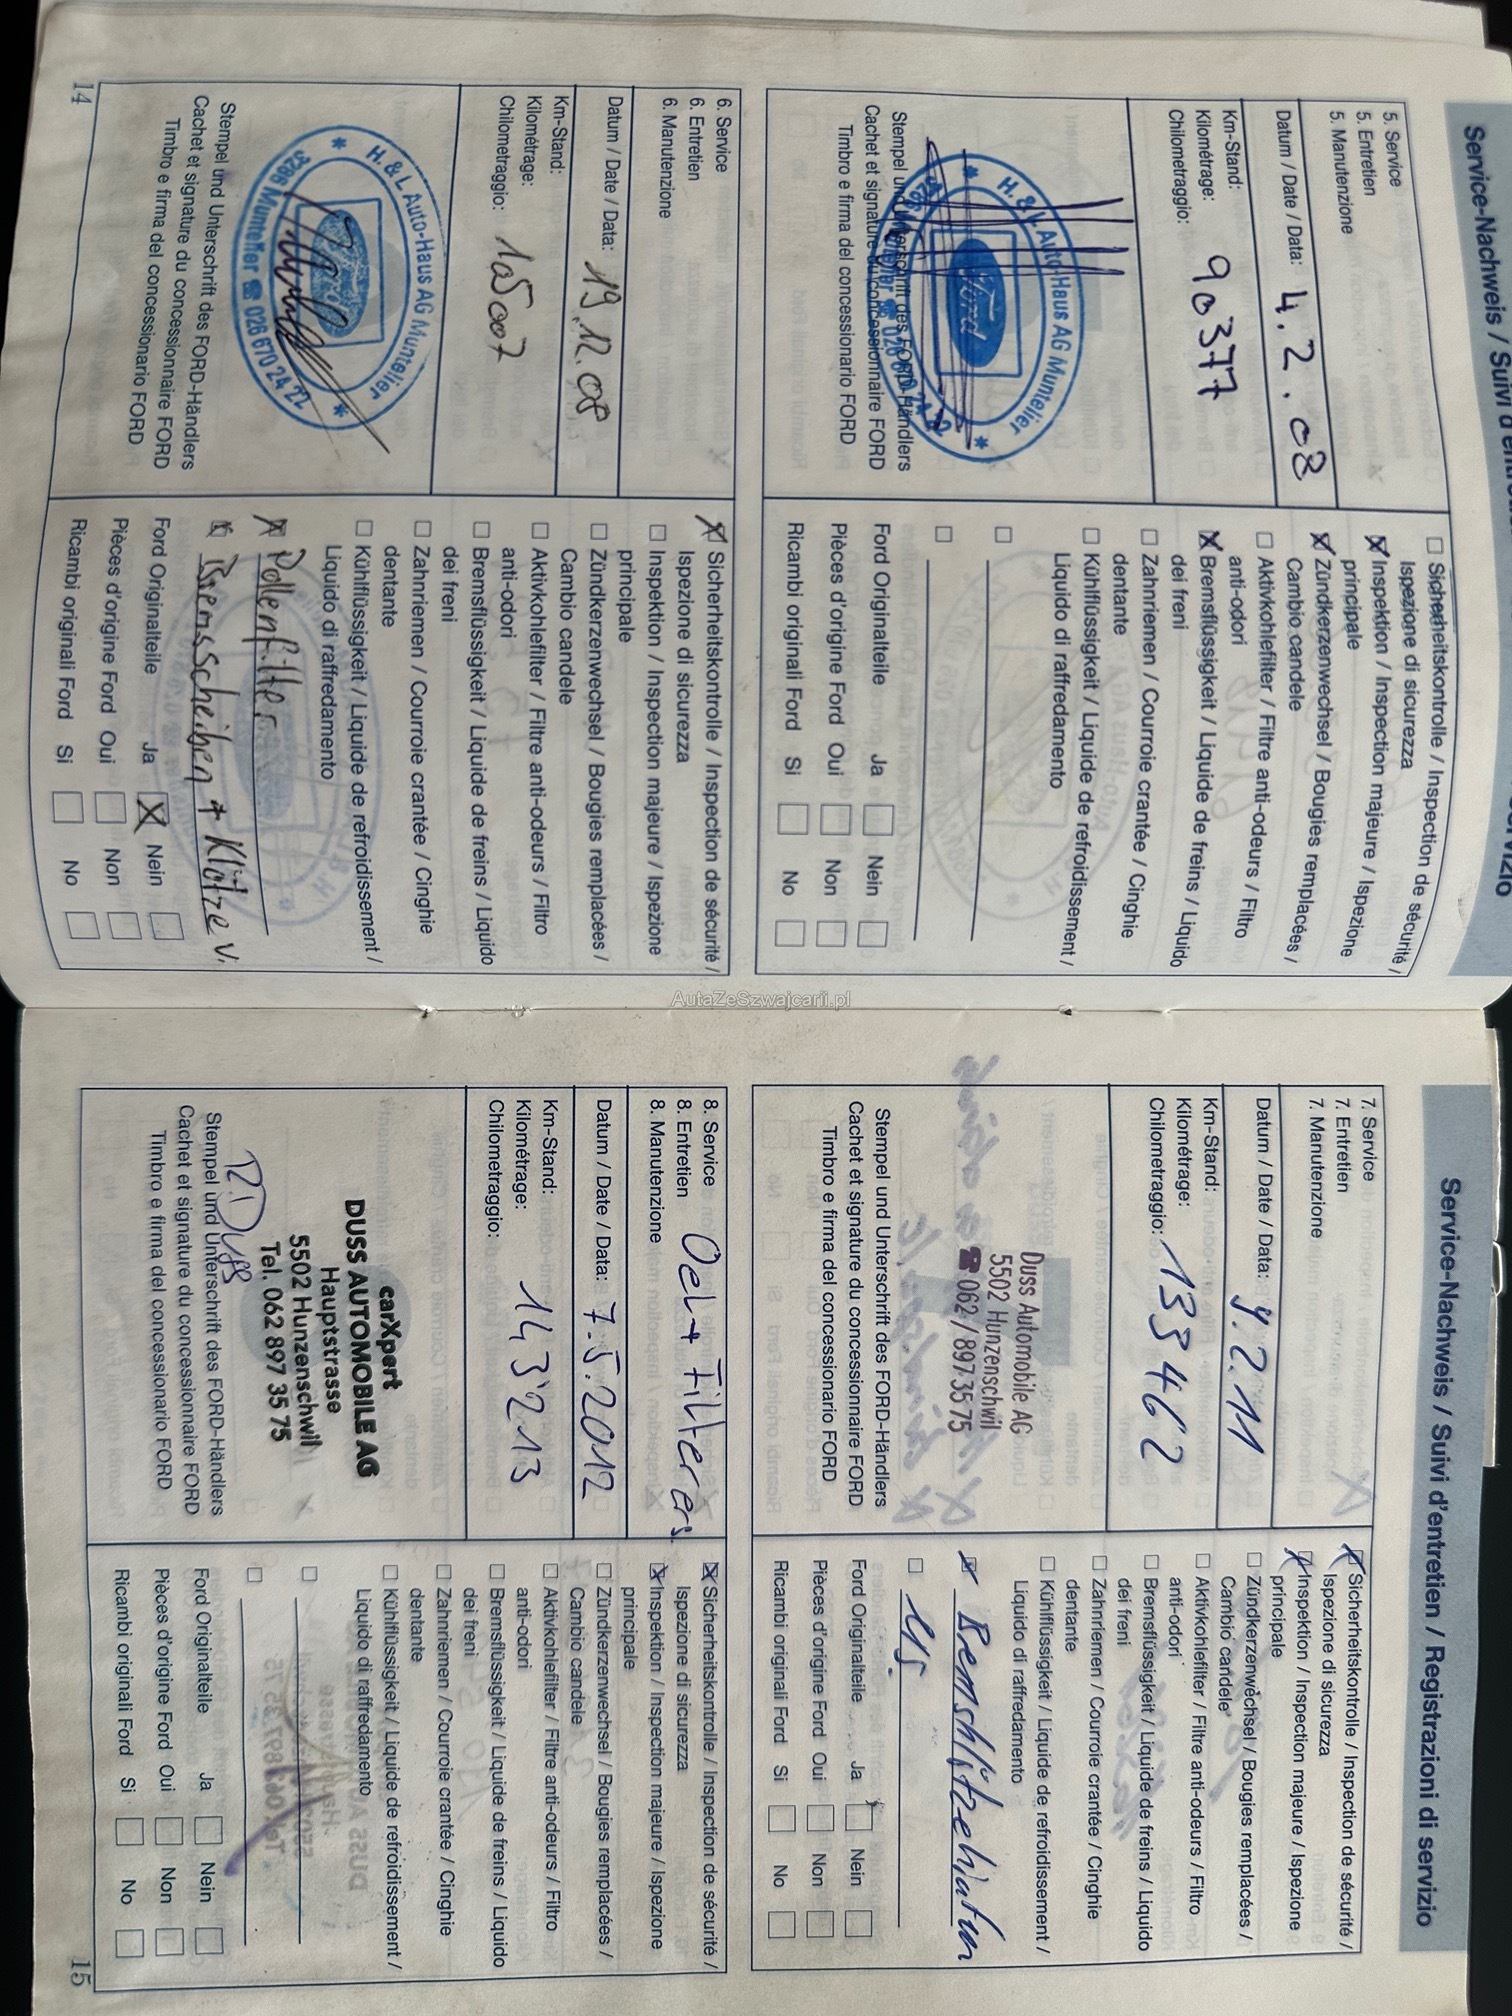 Service-Nachweis / Suivi d'entretien
5. Service
5. Entretien
5. Manutenzione
Datum / Date / Data: 4.2.08
Km-Stand:
Kilométrage:
Chilometraggio:
90377
H. & L Auto-Haus AG Muntelier
Ford
Stempel und Unterschrift des FORD-Händlers
Cachet et signature du concessionnaire FORD
Timbro e firma del concessionario FORD
Sicherheitskontrolle / Inspection de sécurité /
Ispezione di sicurezza
Inspektion / Inspection majeure / Ispezione
principale
Zündkerzenwechsel / Bougies remplacées /
Cambio candele
Aktivkohlefilter / Filtre anti-odeurs / Filtro
anti-odori
Bremsflüssigkeit / Liquide de freins / Liquido
dei freni
Zahnriemen / Courroie crantée / Cinghie
dentante
Kühlflüssigkeit / Liquide de refroidissement /
Liquido di raffredamento
Ford Originalteile Ja Nein
Pièces d'origine Ford Oui Non
Ricambi originali Ford Si No
6. Service
6. Entretien
6. Manutenzione
Datum / Date / Data: 19.12.08
Km-Stand:
Kilométrage:
Chilometraggio:
105007
H. & L Auto-Haus AG Muntelier
3286 Muntelier ☎ 026 670 24 22
Stempel und Unterschrift des FORD-Händlers
Cachet et signature du concessionnaire FORD
Timbro e firma del concessionario FORD
Sicherheitskontrolle / Inspection de sécurité /
Ispezione di sicurezza
Inspektion / Inspection majeure / Ispezione
principale
Zündkerzenwechsel / Bougies remplacées /
Cambio candele
Aktivkohlefilter / Filtre anti-odeurs / Filtro
anti-odori
Bremsflüssigkeit / Liquide de freins / Liquido
dei freni
Zahnriemen / Courroie crantée / Cinghie
dentante
Kühlflüssigkeit / Liquide de refroidissement /
Liquido di raffredamento
Pollenfilter
Bremsscheiben + Klötze v.
Ford Originalteile Ja Nein
Pièces d'origine Ford Oui Non
Ricambi originali Ford Si No
14
AutaZeSzwajcarii.pl
Service-Nachweis / Suivi d'entretien / Registrazioni di servizio
7. Service
7. Entretien
7. Manutenzione
Datum / Date / Data: 9.2.11
Km-Stand:
Kilométrage:
Chilometraggio: 133462
Duss Automobile AG
5502 Hunzenschwil
☎ 062 / 897 35 75
Stempel und Unterschrift des FORD-Händlers
Cachet et signature du concessionnaire FORD
Timbro e firma del concessionario FORD
Sicherheitskontrolle / Inspection de sécurité /
Ispezione di sicurezza
Inspektion / Inspection majeure / Ispezione
principale
Zündkerzenwechsel / Bougies remplacées /
Cambio candele
Aktivkohlefilter / Filtre anti-odeurs / Filtro
anti-odori
Bremsflüssigkeit / Liquide de freins / Liquido
dei freni
Zahnriemen / Courroie crantée / Cinghie
dentante
Kühlflüssigkeit / Liquide de refroidissement /
Liquido di raffredamento
Ford Originalteile Ja Nein
Pièces d'origine Ford Oui Non
Ricambi originali Ford Si No
8. Service
8. Entretien
8. Manutenzione
Oel + Filter ers.
Datum / Date / Data: 7.5.2012
Km-Stand:
Kilométrage:
Chilometraggio:
143'213
carXpert
DUSS AUTOMOBILE AG
Hauptstrasse
5502 Hunzenschwil
Tel. 062 897 35 75
Stempel und Unterschrift des FORD-Händlers
Cachet et signature du concessionnaire FORD
Timbro e firma del concessionario FORD
Sicherheitskontrolle / Inspection de sécurité /
Ispezione di sicurezza
Inspektion / Inspection majeure / Ispezione
principale
Zündkerzenwechsel / Bougies remplacées /
Cambio candele
Aktivkohlefilter / Filtre anti-odeurs / Filtro
anti-odori
Bremsflüssigkeit / Liquide de freins / Liquido
dei freni
Zahnriemen / Courroie crantée / Cinghie
dentante
Kühlflüssigkeit / Liquide de refroidissement /
Liquido di raffredamento
Ford Originalteile Ja Nein
Pièces d'origine Ford Oui Non
Ricambi originali Ford Si No
15